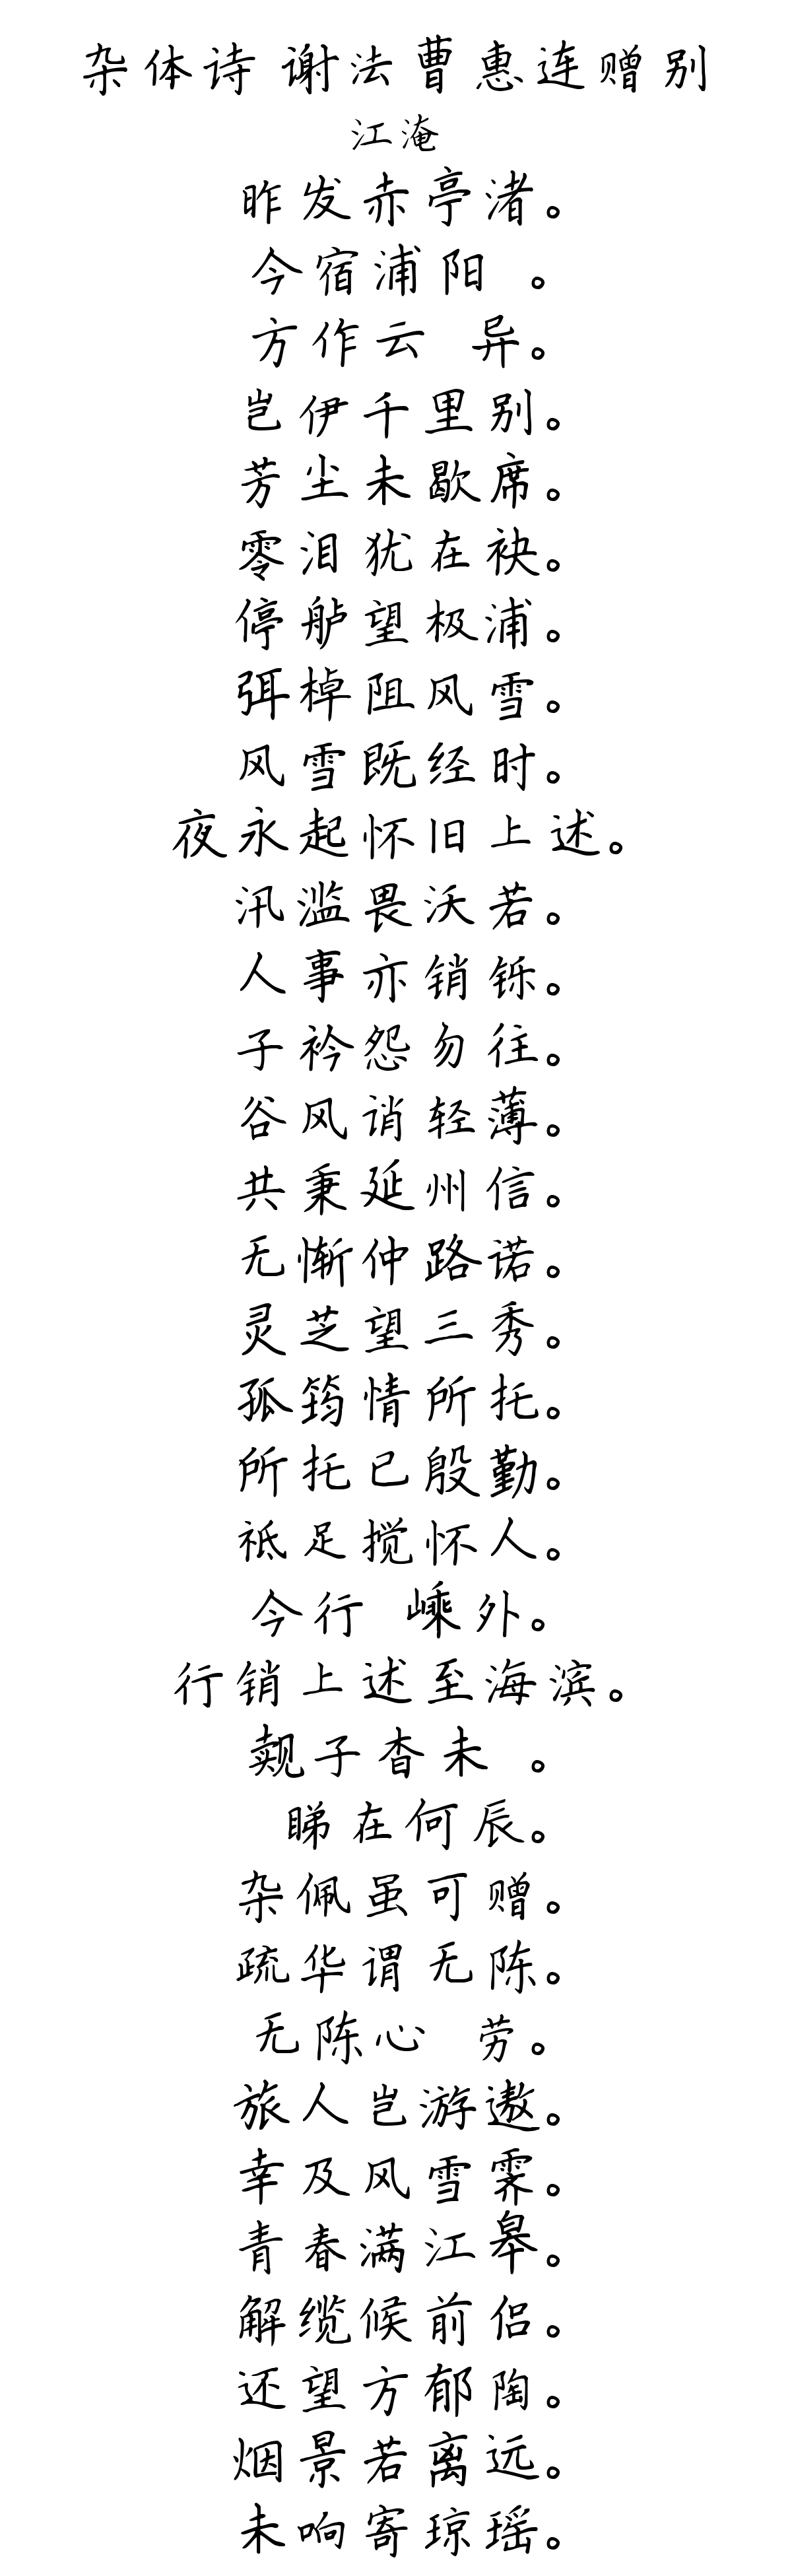 杂体诗 谢法曹惠连赠别
江淹
昨发赤亭渚。
今宿浦阳 。
方作云 异。
岂伊千里别。
芳尘未歇席。
零泪犹在袂。
停舻望极浦。
弭棹阻风雪。
风雪既经时。
夜永起怀旧上述。
汛滥畏沃若。
人事亦销铄。
子衿怨勿往。
谷风诮轻薄。
共秉延州信。
无惭仲路诺。
灵芝望三秀。
孤筠情所托。
所托已殷勤。
祗足搅怀人。
今行 嵊外。
行销上述至海滨。
觌子杳未 。
睇在何辰。
杂佩虽可赠。
疏华谓无陈。
无陈心 劳。
旅人岂游遨。
幸及风雪霁。
青春满江皋。
解缆候前侣。
还望方郁陶。
烟景若离远。
未响寄琼瑶。